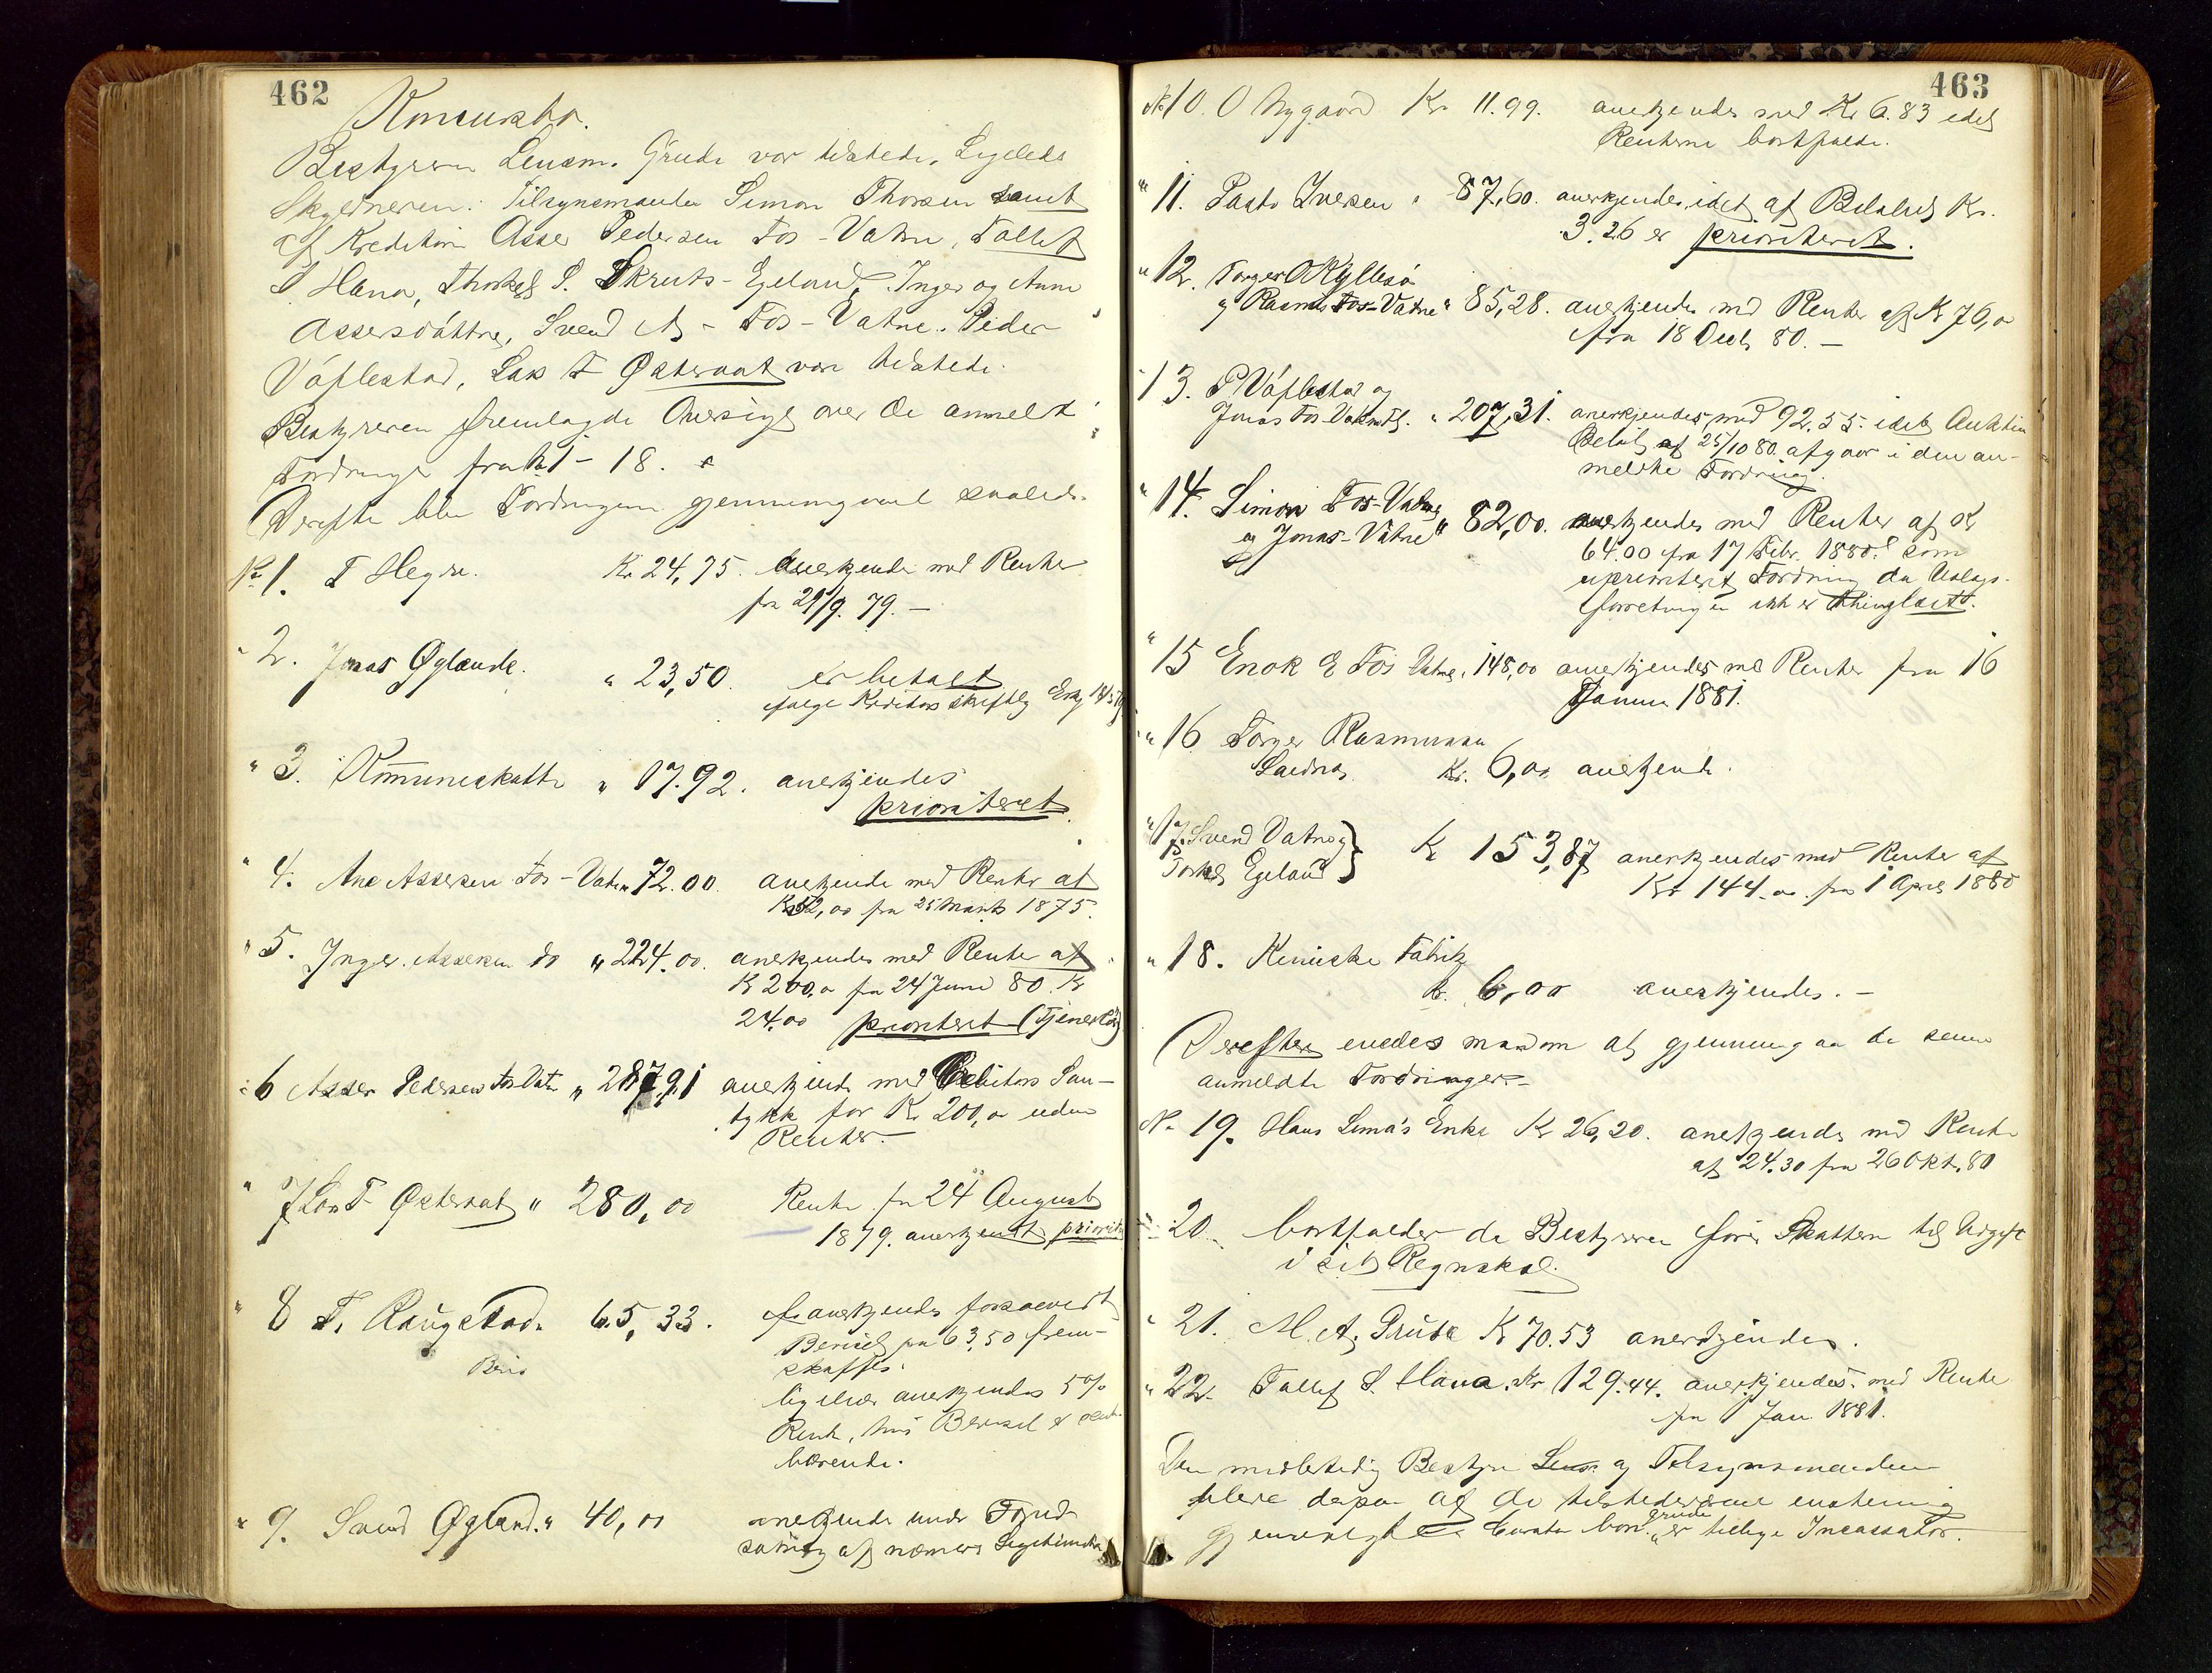 462
Konkursbo.
Bestyreren Lensm. Grude var tilstede. Ligeledes
Skyldneren. Tilsynsmanden Simon Thorsen samt
af Kreditorer Asser Pedersen Fos-Vatne, Tollef
S Hana, Thorkel S. Skruts-Egeland, Inger og Anne
Assersdåttre, Svend A - Fos-Vatne. Peder
Våflestad, Lars T Østeraat vare tilstede.
Bestyreren fremlagde Oversigt over de anmeldte
Fordringer fra No 1 - 18.
Derefter blev Fordringerne gjennemgaaet saaledes
No 1. T Hegre. Kr 24,75. Anerkjendes med Renter
fra 29/9. 79. —
" 2. Jonas Øglænde. " 23,50. er betalt
ifølge Kreditors skriftlig
" 3. Kommuneskatte " 17.92. anerkjendes
prioriteret.
" 4. Ane Assersen Fos-Vatne 72.00. anerkjendes med Renter af
Kr 52,00 fra 25 Marts 1875.
" 5. Inger Assersen do " 224.00. anerkjendes med Renter af
Kr 200,00 fra 24 Juni 80. Kr
24.00 prioriteret (Tjenerløn)
" 6 Asser Pedersen Fos Vatne " 287,91 anerkjendes med Debitors Sam-
tykke for Kr. 200,00 uden
Renter.—
" 7 Lars T Østeraat " 280,00 Renter fra 24 August
1879. anerkjendt priorite
" 8 T. Raugstad. 65,33. anerkjendes forsaavidt
Bevis for 63,50 frem-
skaffes.
ligeledes anerkjendes 5%
Rente, hvis Beviset er rente-
bærende.
" 9. Svend Øgland. " 40,00 anerkjendes under Forud-
sætning af nærmere Legitimation
463
No 10. O Nygaard Kr 11.99. anerkjendes med Kr 6.83 idet
Renterne bortfalde.
" 11. Pastor Iversen " 87,60. anerkjendes, idet af Beløbet Kr.
3.26 er prioriteret.
" 12. Torger O Kyllesø
og Rasmus Fos-Vatne " 85,28. anerkjendes med Renter af Kr 76,00
fra 18 Decb 80. —
" 13. P Våflestad og
Jonas Fos Vatne " 207,31. anerkjendes med 92.55. idet Auktion
Beløb af 25/10 80. afgaar i den an-
meldte Fordring.
" 14. Simon Fos-Vatne
og Jonas-Vatne " 82,00. anerkjendes med Renter af Kr
64.00 fra 17 Febr. 1880. som
uprioriteret Fordring da Udlægs-
forretningen ikke er thinglæst.
" 15 Enok E Fos Vatne " 148,00 anerkjendes med Renter fra 16
Januar 1881.
" 16 Torger Rasmussen
Kr. 6,00 anerkjendes.
" 17. Svend Vatne og
Torkel Egeland } Kr 153,87 anerkjendes med Renter af
Kr 144.00 fra 1 April 1880
" 18. Kemiske Fabrik
Kr. 6,00 anerkjendes. —
Derefter enedes man om at gjennemgaa de senere
anmeldte Fordringer.—
No 19. Hans Lima's Enke Kr 26,20. anerkjendes med Rente
af 24.30 fra 26 Okt. 80
" 20. bortfalder da Bestyreren fører Skatten til Udgift
i sit Regnskab.
" 21. M. A. Grude Kr 70.53 anerkjendes.
" 22. Tollef S. Hana. Kr 129.44. anerkjendes. med Rente
fra 1 Jan. 1881.
Den midlertidig Bestyrer Lens og Tilsynsmanden
bleve derpaa af de tilstedeværende enstemmig
Grude
gjenvalgt Curator bon. er tillige Incassator.